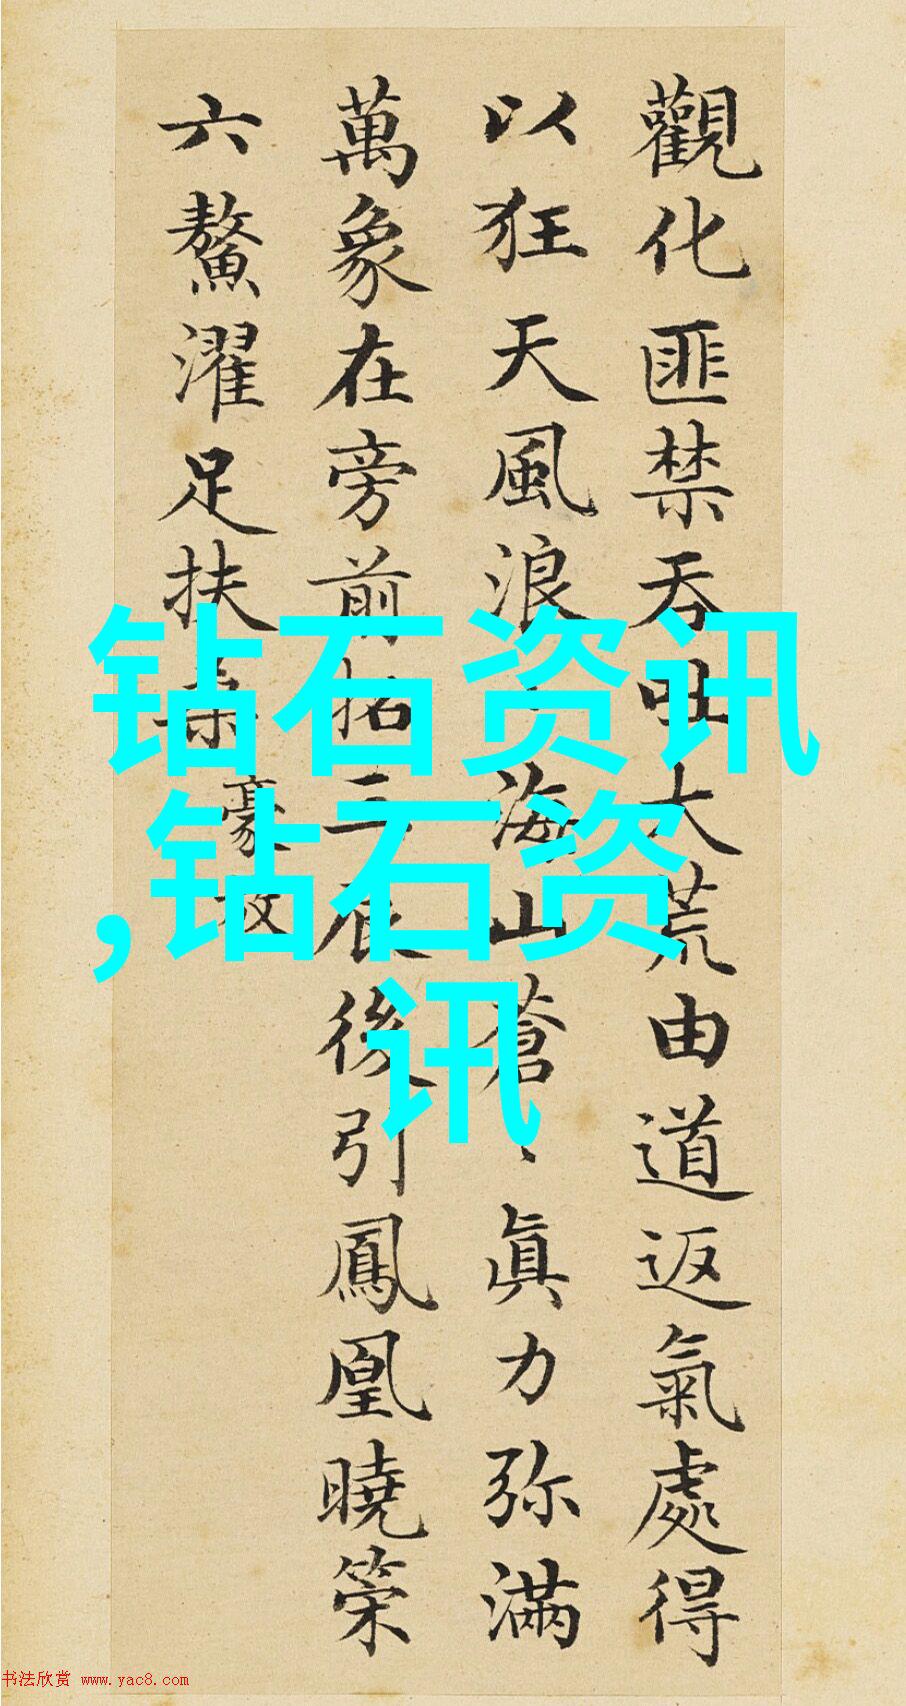 觀化匪禁吞吐大荒由道返氣處得
以狂天風浪〻海山蒼〻眞力弥滿
萬象在旁前招三辰後引鳳凰曉策
六鰲濯足扶桒
豪放
钻石资讯
,钻石资
讯
书法欣赏 www.yac8.com